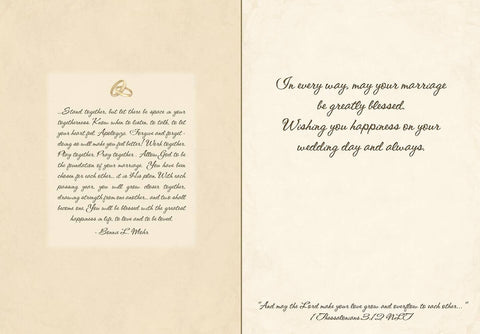 ...Stand together, but let there be space in your
togetherness. Know when to listen, to talk, to let
your heart feel. Apologize. Forgive and forget-
doing so will make you feel better! Work together.
Play together. Pray together. Allow God to be
the foundation of your marriage. You have been
chosen for each other... it is His plan. With each
passing year, you will grow closer together,
drawing strength from one another... and two shall
become one. You will be blessed with the greatest
happiness in life, to love and to be loved.
- Bonna L. Mohr
In every way, may your marriage
be greatly blessed.
Wishing you happiness on your
wedding day and always.
"And may the Lord make your love grow and overflow to each other..."
1 Thessalonians 3:12 NLT